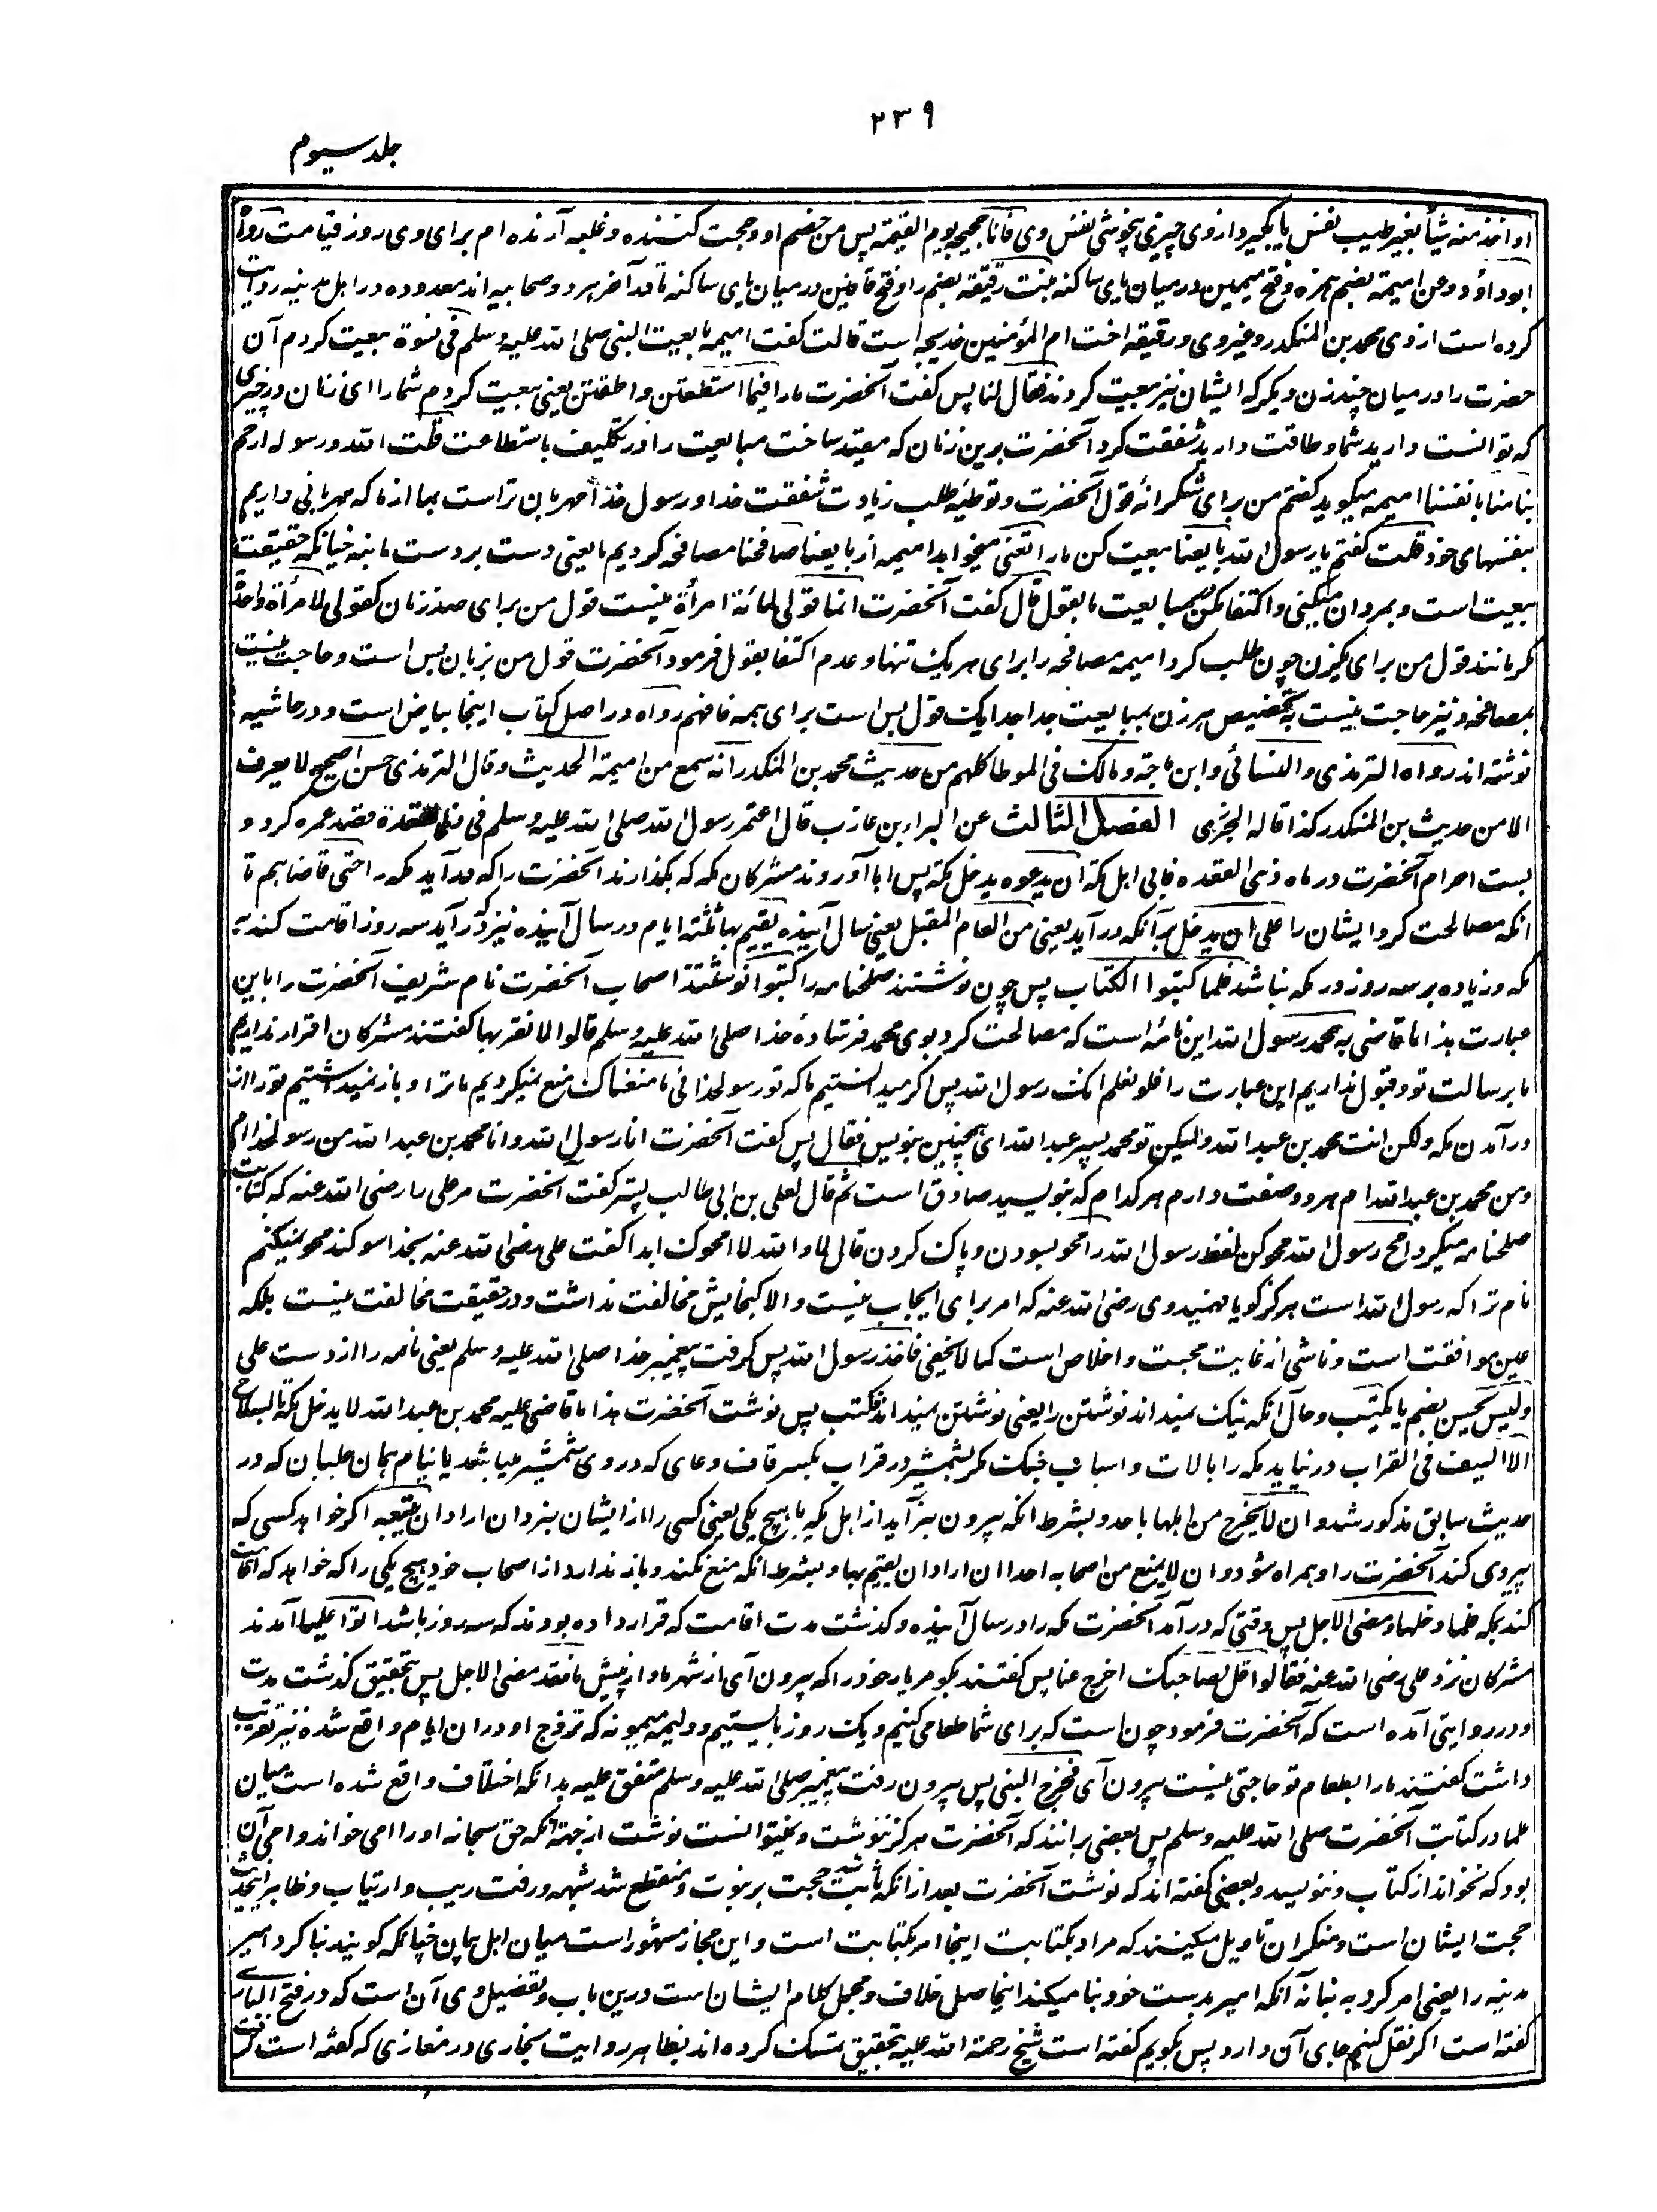 ۲۳۹
جلد سیوم
او اخذ منه شیأ بغیر طیب نفس یا بگیرد از وی چیزی بخوشی نفس وی فانا حجیجه یوم القیمة پس من خصم او و حجت کننده و غلبه آرنده ام برای وی روز قیامت رواه
ابوداؤد وعن امیمة بضم همزه و فتح میمین در میان یای ساکنه بنت رقیقة بضم را و فتح قافین در میان یای ساکنه تا در آخر هر دو صحابیه اند معدوده در اهل مدینه روایت
کرده است از وی محمد بن المنکدر و غیر وی و رقیقه اخت ام المؤمنین خدیجه است قالت گفت امیمه بایعت النبی صلی الله علیه وسلم فی نسوة بیعت کردم آن
حضرت را در میان چند زن دیگر که ایشان نیز بیعت کردند فقال لنا پس گفت آنحضرت مارا فیما استطعتن واطقتن یعنی بیعت کردم شما را ای زنان در چیزی
که توانست دارید شما و طاقت دارید شفقت کرد آنحضرت برین زنان که مقید ساخت مبایعت را در تکلیف باستطاعت قلت الله ورسوله ارحم
بنا منا بانفسنا امیمه میگوید گفتم من برای شکرانهٔ قول آنحضرت و توطیه طلب زیادت شفقت خدا و رسول خدا مهربان تر است بما از ما که مهربانی داریم
بنفسهای خود قلت گفتم یا رسول الله بایعنا بیعت کن مارا تعنی میخواهد امیمه از بایعنا صافحنا مصافحه کردیم ما یعنی دست بر دست ما بنه چنانکه حقیقت
بیعت است و بمردان میکنی و اکتفا مکن بمبایعت ما بقول قال گفت آنحضرت انما قولی لمائة امرأة نیست قول من برای صد زنان کقولی لامرأة واحدة
مگر مانند قول من برای یکزن چون طلب کرد امیمه مصافحه را برای هر یک تنها و عدم اکتفا بقول فرمود آنحضرت قول من بزبان بس است و حاجت نیست
بمصافحه و نیز حاجت نیست به تخصیص هر زن بمبایعت جدا جدا یک قول بس است برای همه فافهم رواه در اصل کتاب اینجا بیاض است و در حاشیه
نوشته اند رواه الترمذی والنسائی وابن ماجة ومالک فی الموطا کلهم من حدیث محمد بن المنکدر انه سمع من امیمة الحدیث وقال الترمذی حسن صحیح لا یعرف
الا من حدیث بن المنکدر کذا قاله الجزری الفصل الثالث عن البراء بن عازب قال اعتمر رسول الله صلی الله علیه وسلم فی ذی القعدة قصد عمره کرد و
بست احرام آنحضرت در ماه ذی القعده فابی اهل مکة ان یدعوه یدخل مکة پس ابا آوردند مشرکان مکه که بگذارند آنحضرت را که در آید مکه را حتی قاضاهم تا
آنکه مصالحت کرد ایشان را علی ان یدخل برآنکه در آید یعنی من العام المقبل یعنی سال آینده یقیم بها ثلثة ایام در سال آینده نیز که در آید سه روز اقامت کند به
مکه و زیاده بر سه روز در مکه نباشد فلما کتبوا الکتاب پس چون نوشتند صلحنامه را کتبوا نوشتند اصحاب آنحضرت نام شریف آنحضرت را باین
عبارت هذا ما قاضی به محمد رسول الله این نامه است که مصالحت کرد بوی محمد فرستادهٔ خدا صلی الله علیه وسلم قالوا لا نقر بها گفتند مشرکان اقرار نداریم
ما برسالت تو و قبول نداریم این عبارت را فلو نعلم انک رسول الله پس اگر میدانستیم ما که تو رسول خدائی ما منعناک منع نمیکردیم ما ترا و باز نمیداشتیم تو را از
در آمدن مکه ولکن انت محمد بن عبد الله ولیکن تو محمد پسر عبد الله ای همچنین بنویس فقال پس گفت آنحضرت انا رسول الله وانا محمد بن عبد الله من رسول خدا ام
و من محمد بن عبد الله ام هر دو صفت دارم هر کدام که بنویسید صادق است ثم قال لعلی بن ابی طالب پستر گفت آنحضرت مر علی را رضی الله عنه که کتابت
صلحنامه میکرد امح رسول الله محو کن لفظ رسول الله را محو بسودن و پاک کردن قال لا والله لا امحوک ابدا گفت علی رضی الله عنه بخدا سوگند محو نمیکنم
نام ترا که رسول الله است هرگز گویا فهمید وی رضی الله عنه که امر برای ایجاب نیست و الا گنجایش مخالفت نداشت و در حقیقت مخالفت نیست بلکه
عین موافقت است و ناشی از غایت محبت و اخلاص است کما لا یخفی فاخذ رسول الله پس گرفت پیغمبر خدا صلی الله علیه وسلم یعنی نامه را از دست علی
ولیس یحسن بضم یا یکتب و حال آنکه نیک نمیداند نوشتن را یعنی نوشتن نمیداند فکتب پس نوشت آنحضرت هذا ما قاضی علیه محمد بن عبد الله لا یدخل مکة بالسلاح
الا السیف فی القراب در نیاید مکه را بآلات و اسباب جنگ مگر شمشیر در قراب بکسر قاف وعای که در وی شمشیر میباشد یا نیام همان جلبان که در
حدیث سابق مذکور شد وان لا یخرج من اهلها باحد و بشرط آنکه بیرون نبرآید از اهل مکه با هیچ یکی یعنی کسی را از ایشان نبرد ان اراد ان یتبعه اگر خواهد کسی که
پیروی کند آنحضرت را و همراه شود وان لا یمنع من اصحابه احدا ان اراد ان یقیم بها و بشرط آنکه منع نکند و باز ندارد از اصحاب خود هیچ یکی را که خواهد که اقامت
کند بمکه فلما دخلها ومضی الاجل پس وقتی که در آمد آنحضرت مکه را در سال آینده و گذشت مدت اقامت که قرار داده بودند که سه روز باشد اتوا علیا آمدند
مشرکان نزد علی رضی الله عنه فقالوا قل لصاحبک اخرج عنا پس گفتند بگو مر یار خود را که بیرون آی از شهر ما و از پیش ما فقد مضی الاجل پس بتحقیق گذشت مدت
و در روایتی آمده است که آنحضرت فرمود چون است که برای شما طعامی کنیم و یک روز بایستیم و ولیمه میمونه که تزوج او در ان ایام واقع شده نیز تقریب
داشت گفتند مارا بطعام تو حاجتی نیست بیرون آی فخرج النبی پس بیرون رفت پیغمبر صلی الله علیه وسلم متفق علیه بدانکه اختلاف واقع شده است میان
علما در کتابت آنحضرت صلی الله علیه وسلم پس بعضی برانند که آنحضرت هرگز ننوشت و نمیتوانست نوشت از جهت آنکه حق سبحانه او را امی خواند و امی آن
بود که نخواند از کتاب و ننویسد و بعضی گفته اند که نوشت آنحضرت بعد از آنکه ثابت شد حجت بر نبوت و منقطع شد شبهه و رفت ریب و ارتیاب و ظاهر این حدیث
حجت ایشان است و منکران تاویل میکنند که مراد بکتابت اینجا امر بکتابت است و این مجاز مشهور است میان اهل بیان چنانکه گویند بنا کرد امیر
مدینه را یعنی امر کرد به بنا نه آنکه امیر بدست خود بنا میکند اینجا اصل خلاف و مجمل کلام ایشان است درین باب و تفصیل وی آن است که در فتح الباری
گفته است اگر نقل کنیم جای آن دارد پس بگویم گفته است شیخ رحمة الله علیه بتحقیق تمسک کرده اند بظاهر روایت بخاری در مغازی که گفته است